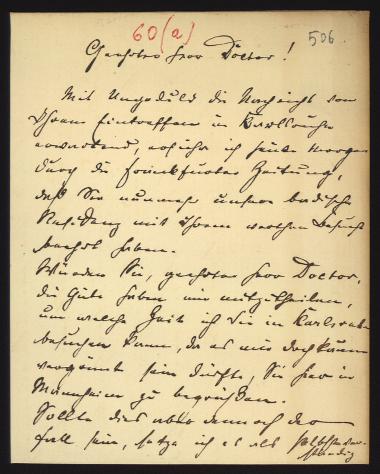 60(a)
506.
Geehrter Herr Doctor!
Mit Ungeduld die Nachricht von
Ihrem Eintreffen in Karlsruhe
erwartend, ersehe ich heute Morgen
durch die Frankfurter Zeitung,
daß Sie nunmehr unsere badische
Residenz mit Ihrem werthen Besuche
beehrt haben.
Würden Sie, geehrter Herr Doctor,
die Güte haben mir mitzutheilen,
um welche Zeit ich Sie in Karlsruhe
besuchen kann, da es mir doch kaum
vergönnt sein dürfte, Sie hier in
Mannheim zu begrüßen.
Sollte dies aber dennoch der
Fall sein, setze ich es als selbstver-
ständig